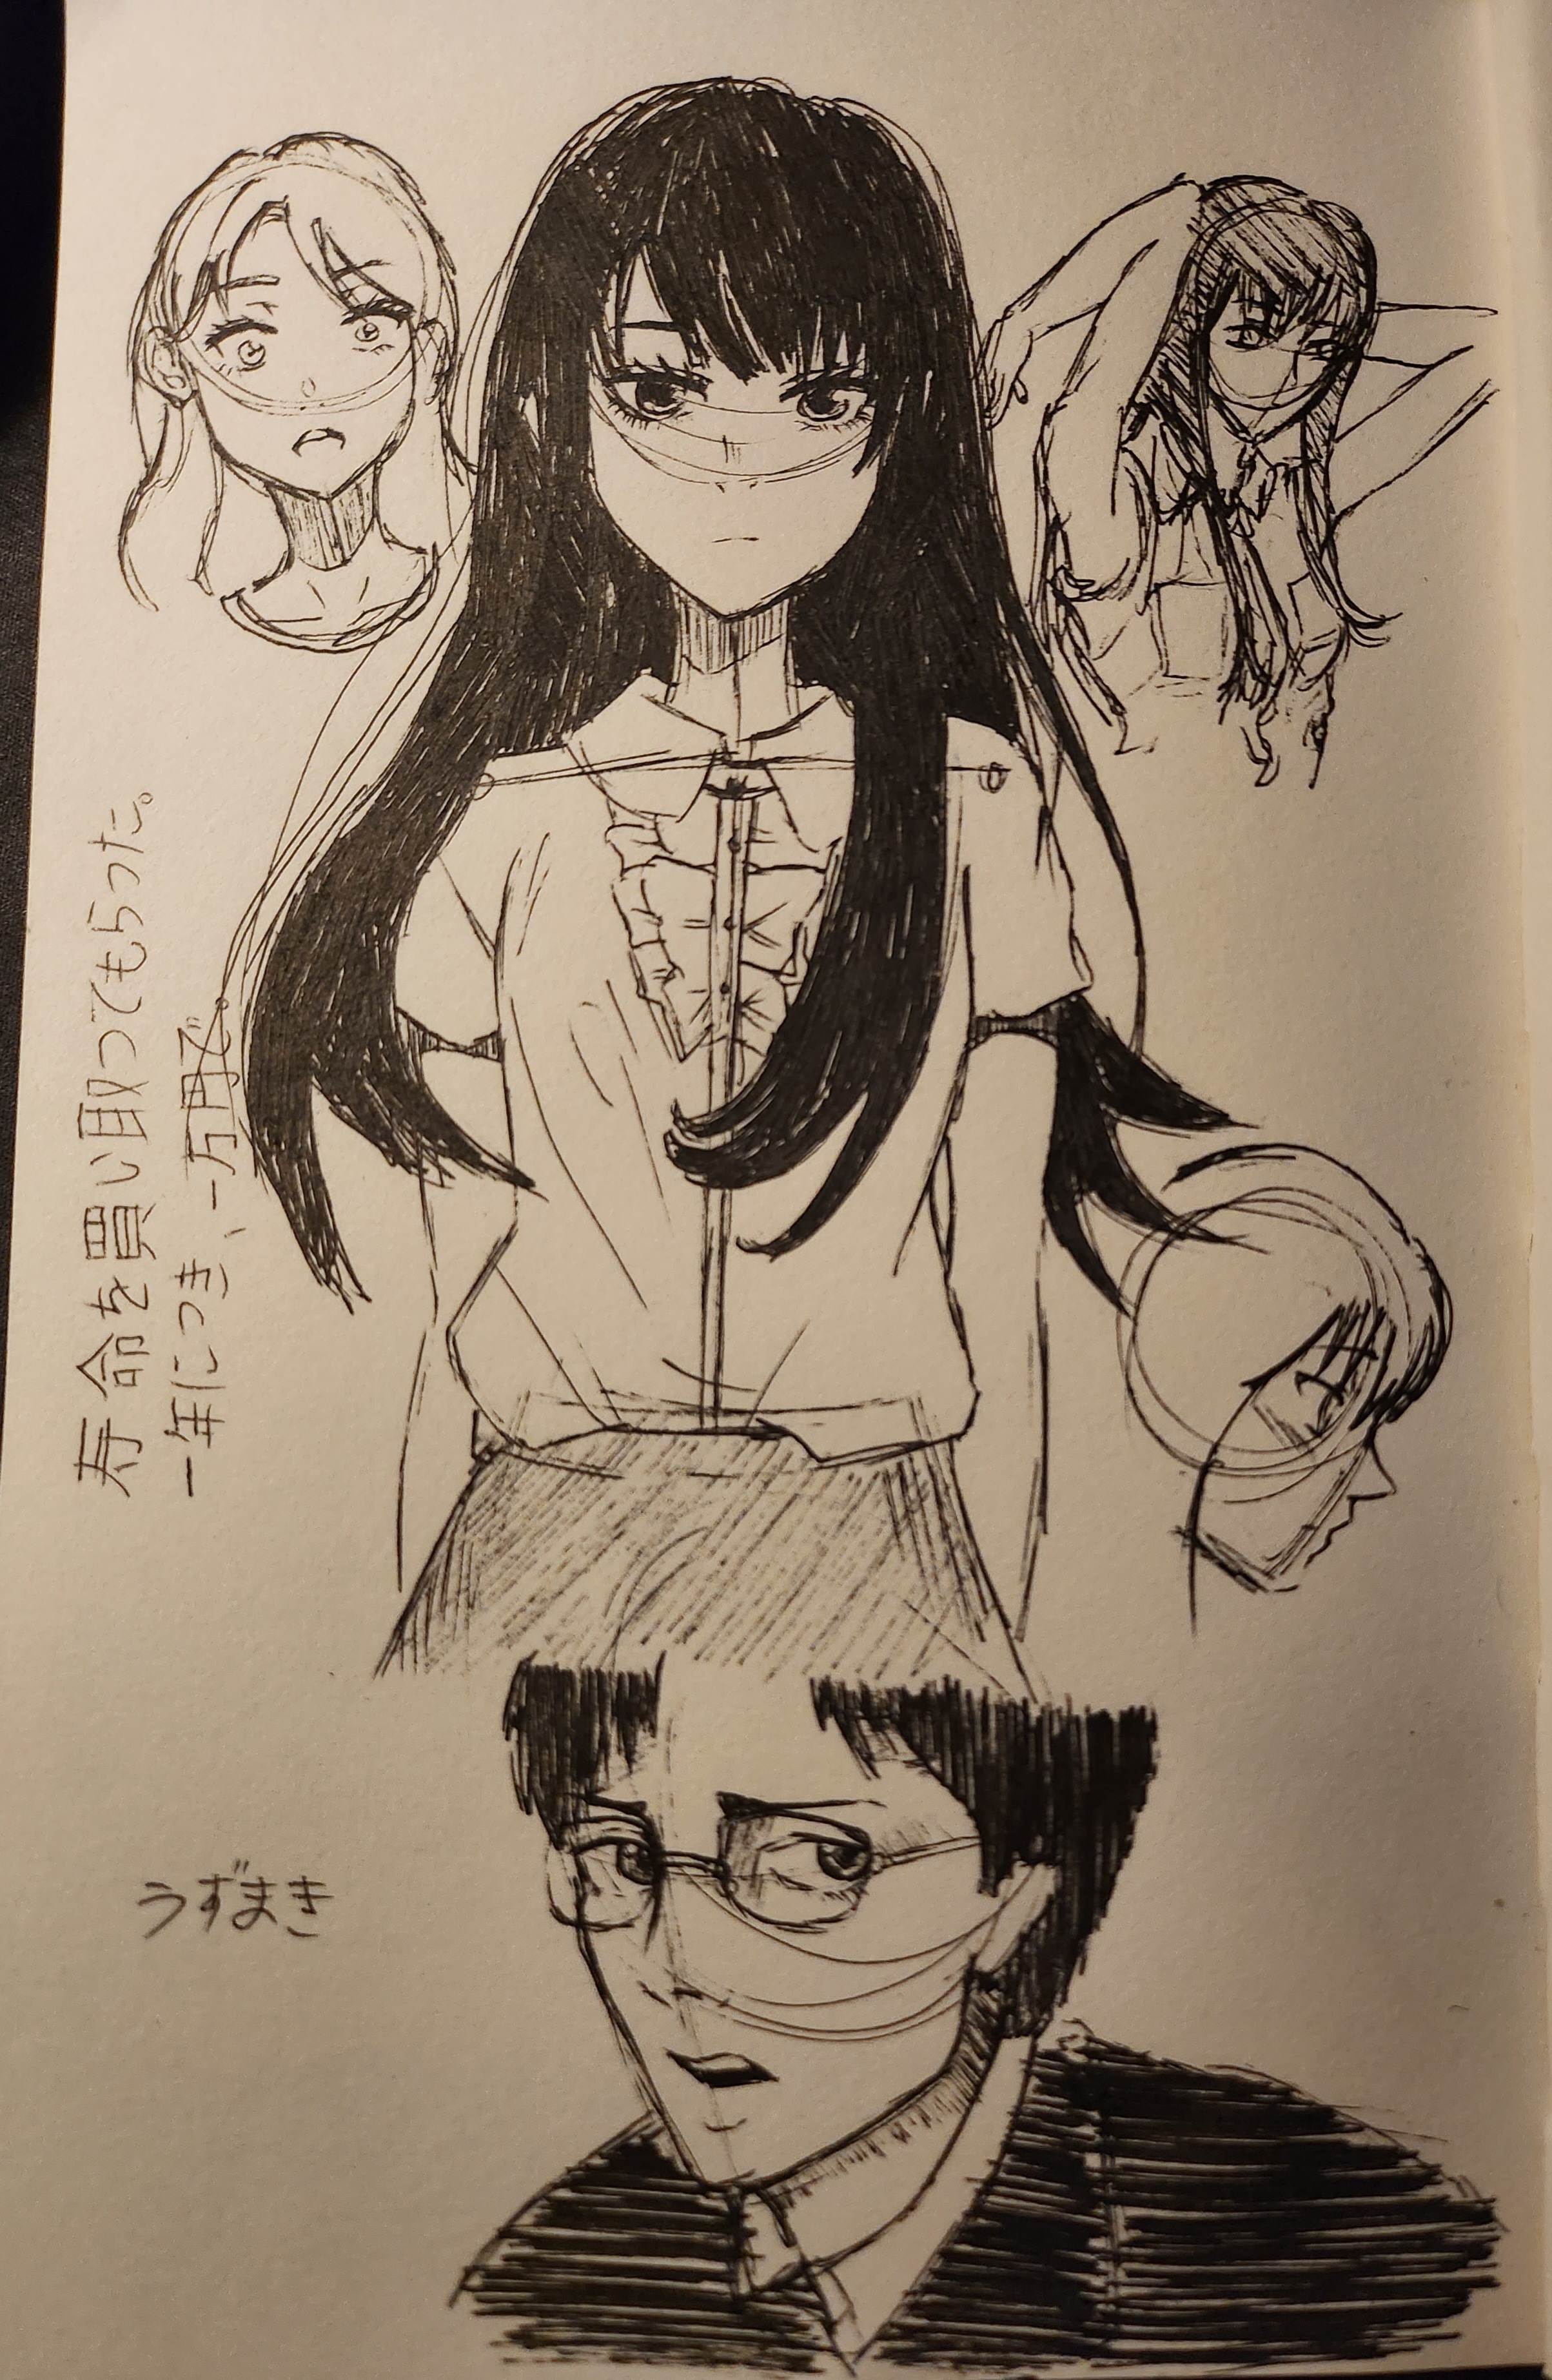 寿命を買い取ってもらった。
一年につき、一万円で。
うずまき